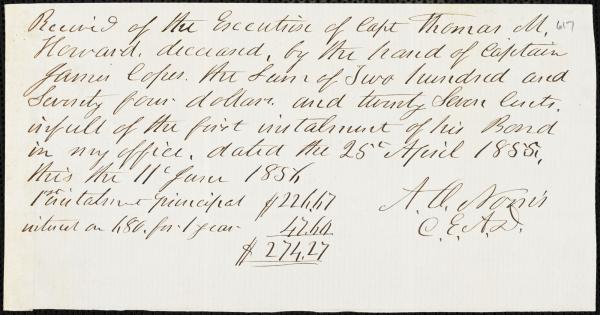 Received of the Executrix of Capt Thomas M, 617
Howard, deceased, by the hand of Captain
James Copes. the Sum of Two hundred and
Seventy four dollars. and twenty Seven Cents.
in full of the first instalment of his Bond
in my office, dated the 25th April 1855,
this the 11th June 1856
1st instalment principal $226.67
interest on 680. for 1 year 47.60
$274.27
A. O. Norris
C. E. A. D.